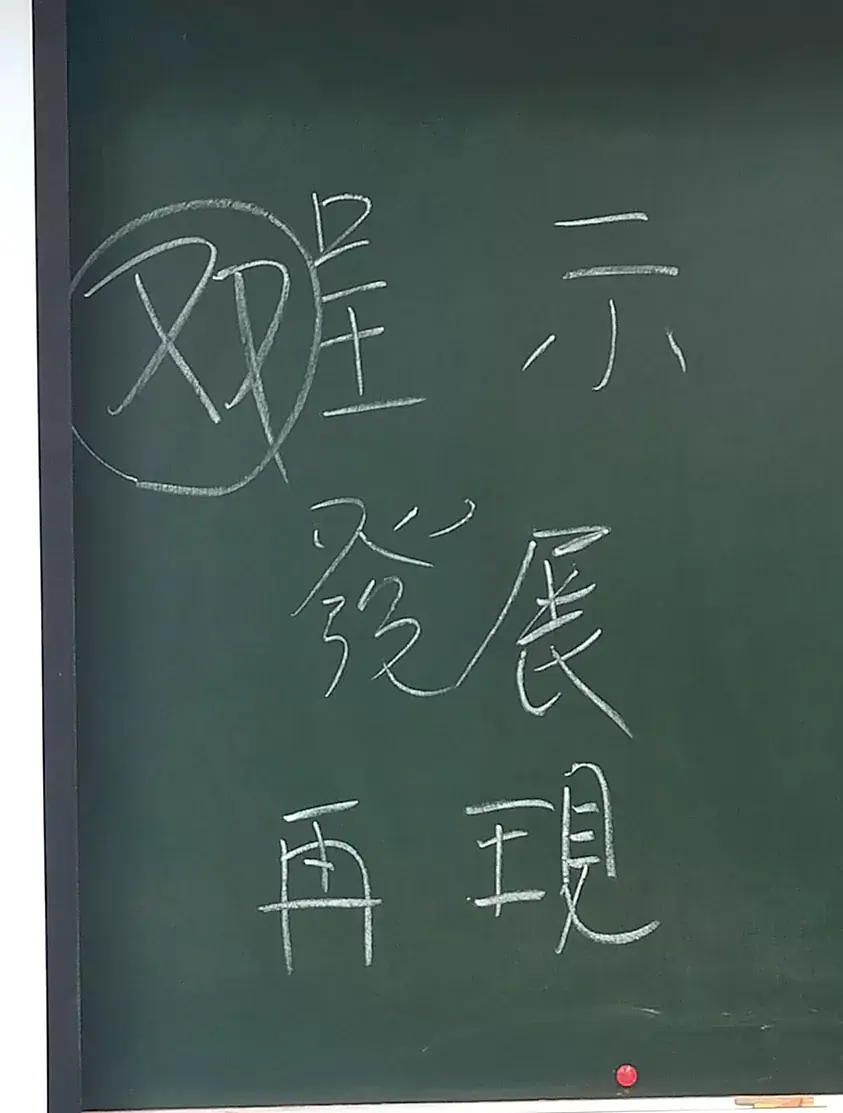 双呈示
發展
再現